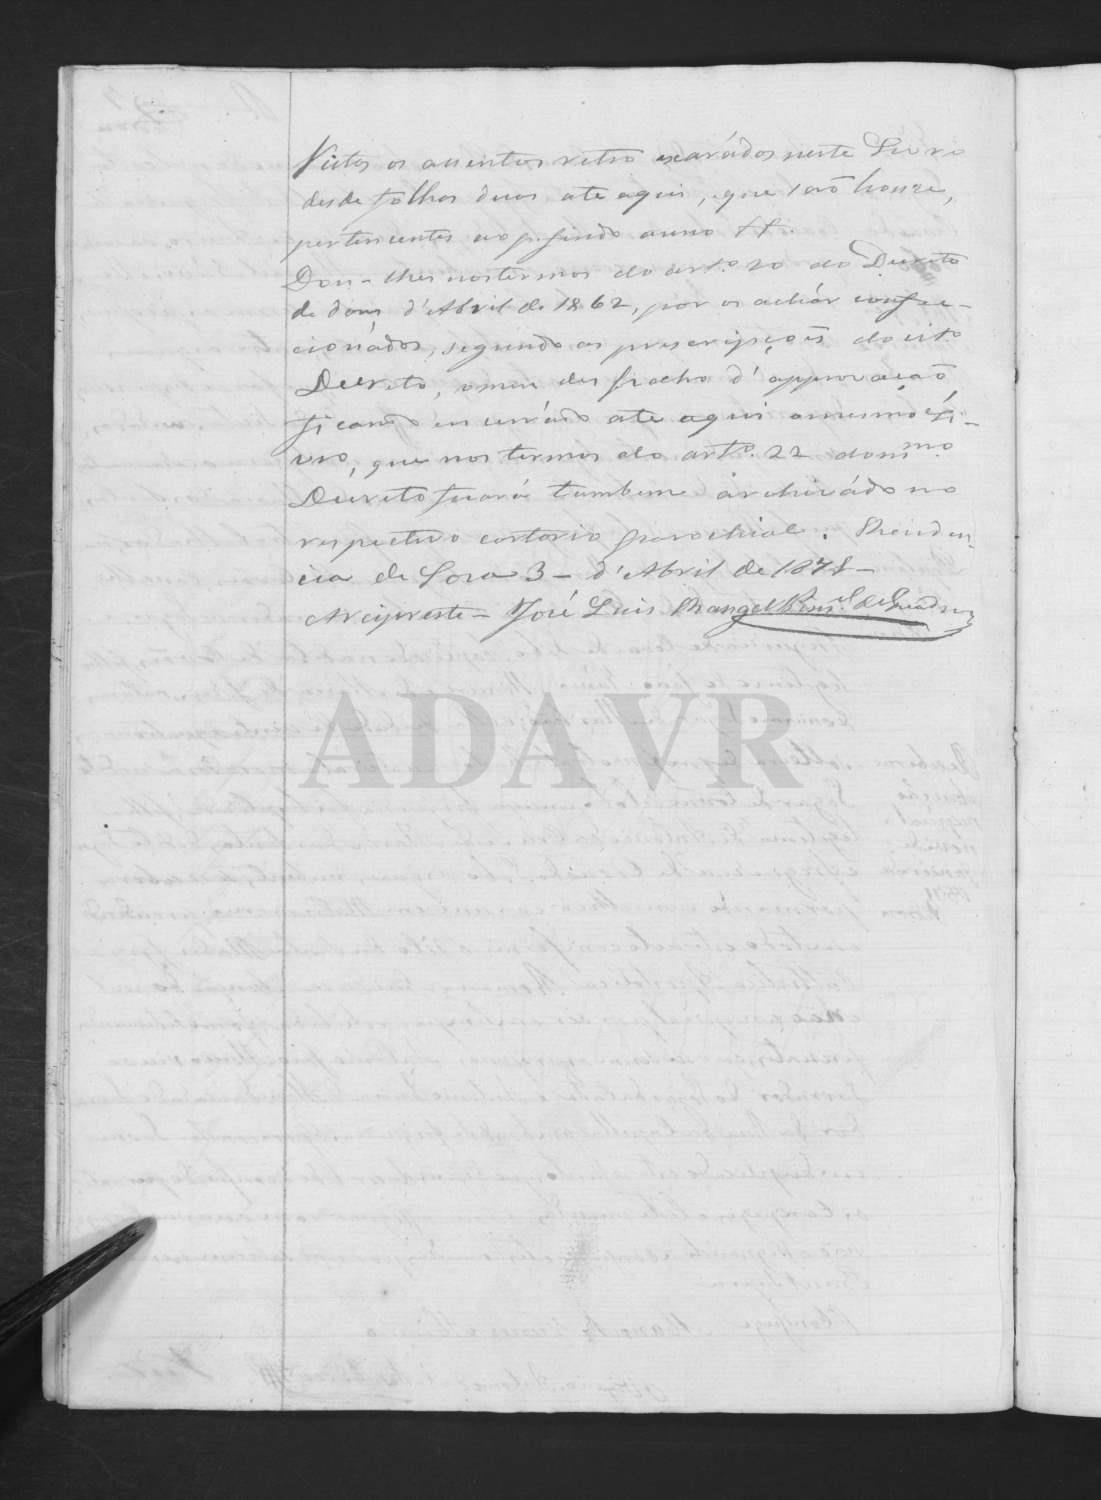 Vistos os assentos retro exarádos neste Livro
desde folhas duas ate aqui, que são honze,
pertencentes ao p. findo anno 77.
Dou-lhes nos termos do art.º 20 do Decreto
de dous d'Abril de 1862, por os achár confec-
cionádos, segundo as prescripções do cit.º
Decreto, o meu despacho d'approvação,
ficando encerrádo ate aqui o mesmo Li-
vro, que nos termos do art.º 22 do m.mo
Decreto ficará tambem archivádo no
respectivo cartorio parochial. Residen-
cia de 3 - d'Abril de 1878 -
Arcipreste - José Luis Rangel de Quadros
ADAVR